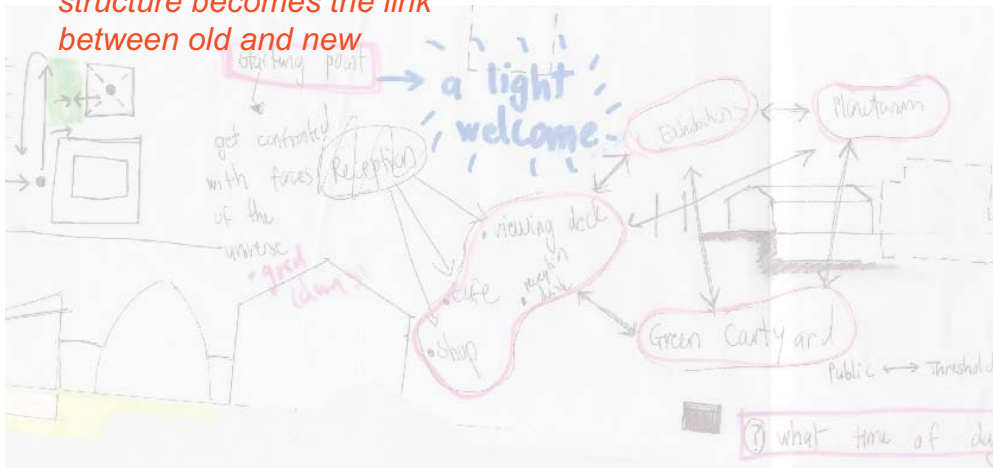 structure becomes the link
between old and new
starting point
a light
welcome
get confronted
with faces
of the
universe
• grid
Reception
Exhibition
Planetarium
• viewing deck
• cafe
• shop
Green Courtyard
Public ↔ Threshold
? what time of day